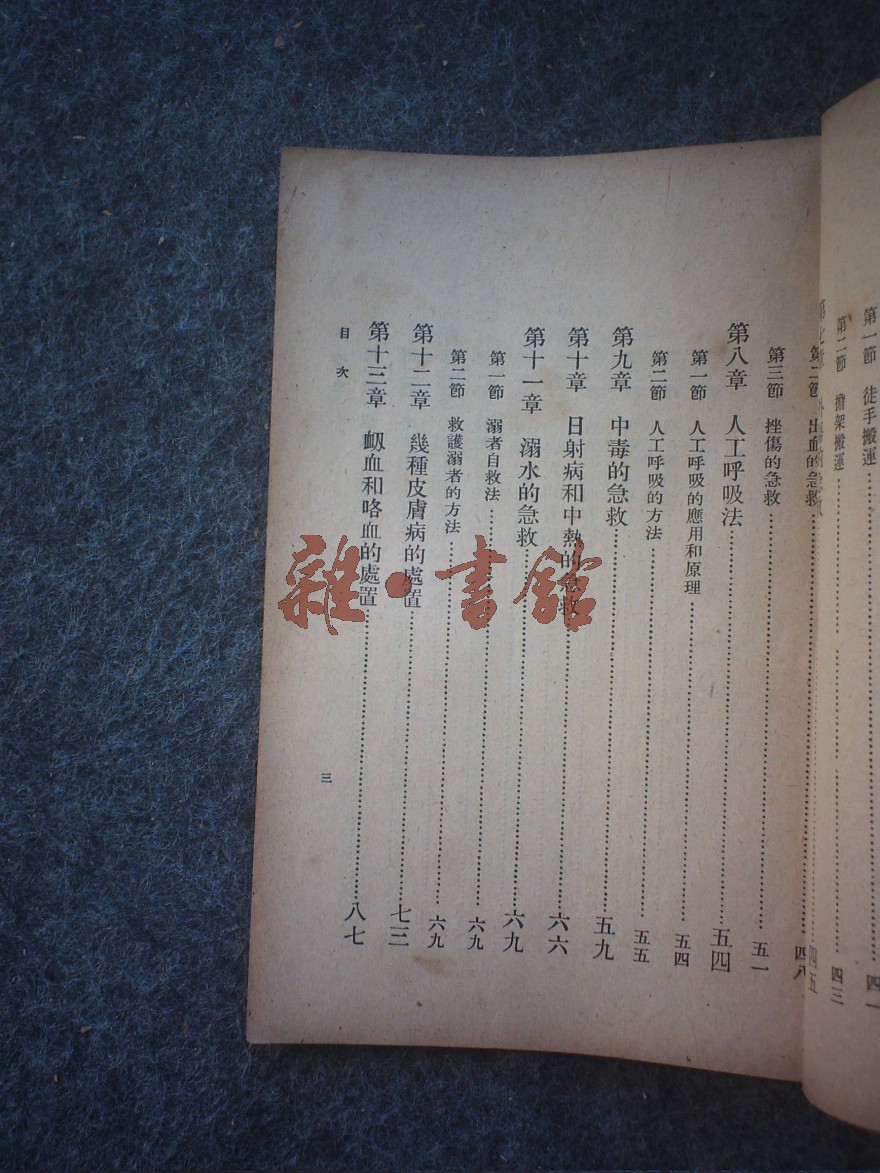 第一節 徒手搬運……四一
第二節 擔架搬運……四三
四五
第二節 出血的急救……四八
第三節 挫傷的急救……五一
第八章 人工呼吸法……五四
第一節 人工呼吸的應用和原理……五四
第二節 人工呼吸的方法……五五
第九章 中毒的急救……五九
第十章 日射病和中熱的急救……六六
第十一章 溺水的急救……六九
第一節 溺者自救法……六九
第二節 救護溺者的方法……六九
第十二章 幾種皮膚病的處置……七三
第十三章 衂血和咯血的處置……八七
目次
三
雜·書館